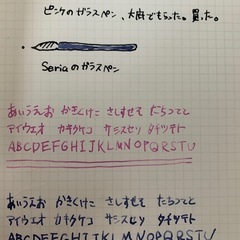 ピンクのガラスペン、大曲でもらった。買った。
Seriaのガラスペン
あいうえお かきくけこ さしすせそ たちつてと
アイウエオ カキクケコ サシスセソ タチツテト
ABCDEFGHIJKLMNOPQRSTU
あいうえお かきくけこ さしすせそ たちつてと
アイウエオ カキクケコ サシスセソ タチツテト
ABCDEFGHIJKLMNOPQRSTU